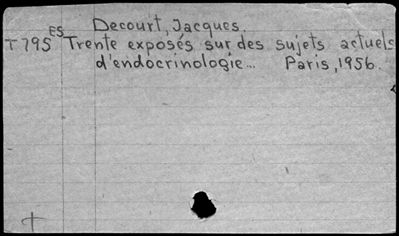 Decourt, Jacques.
T795 ES Trente exposés sur des sujets actuels
d'endocrinologie... Paris, 1956.